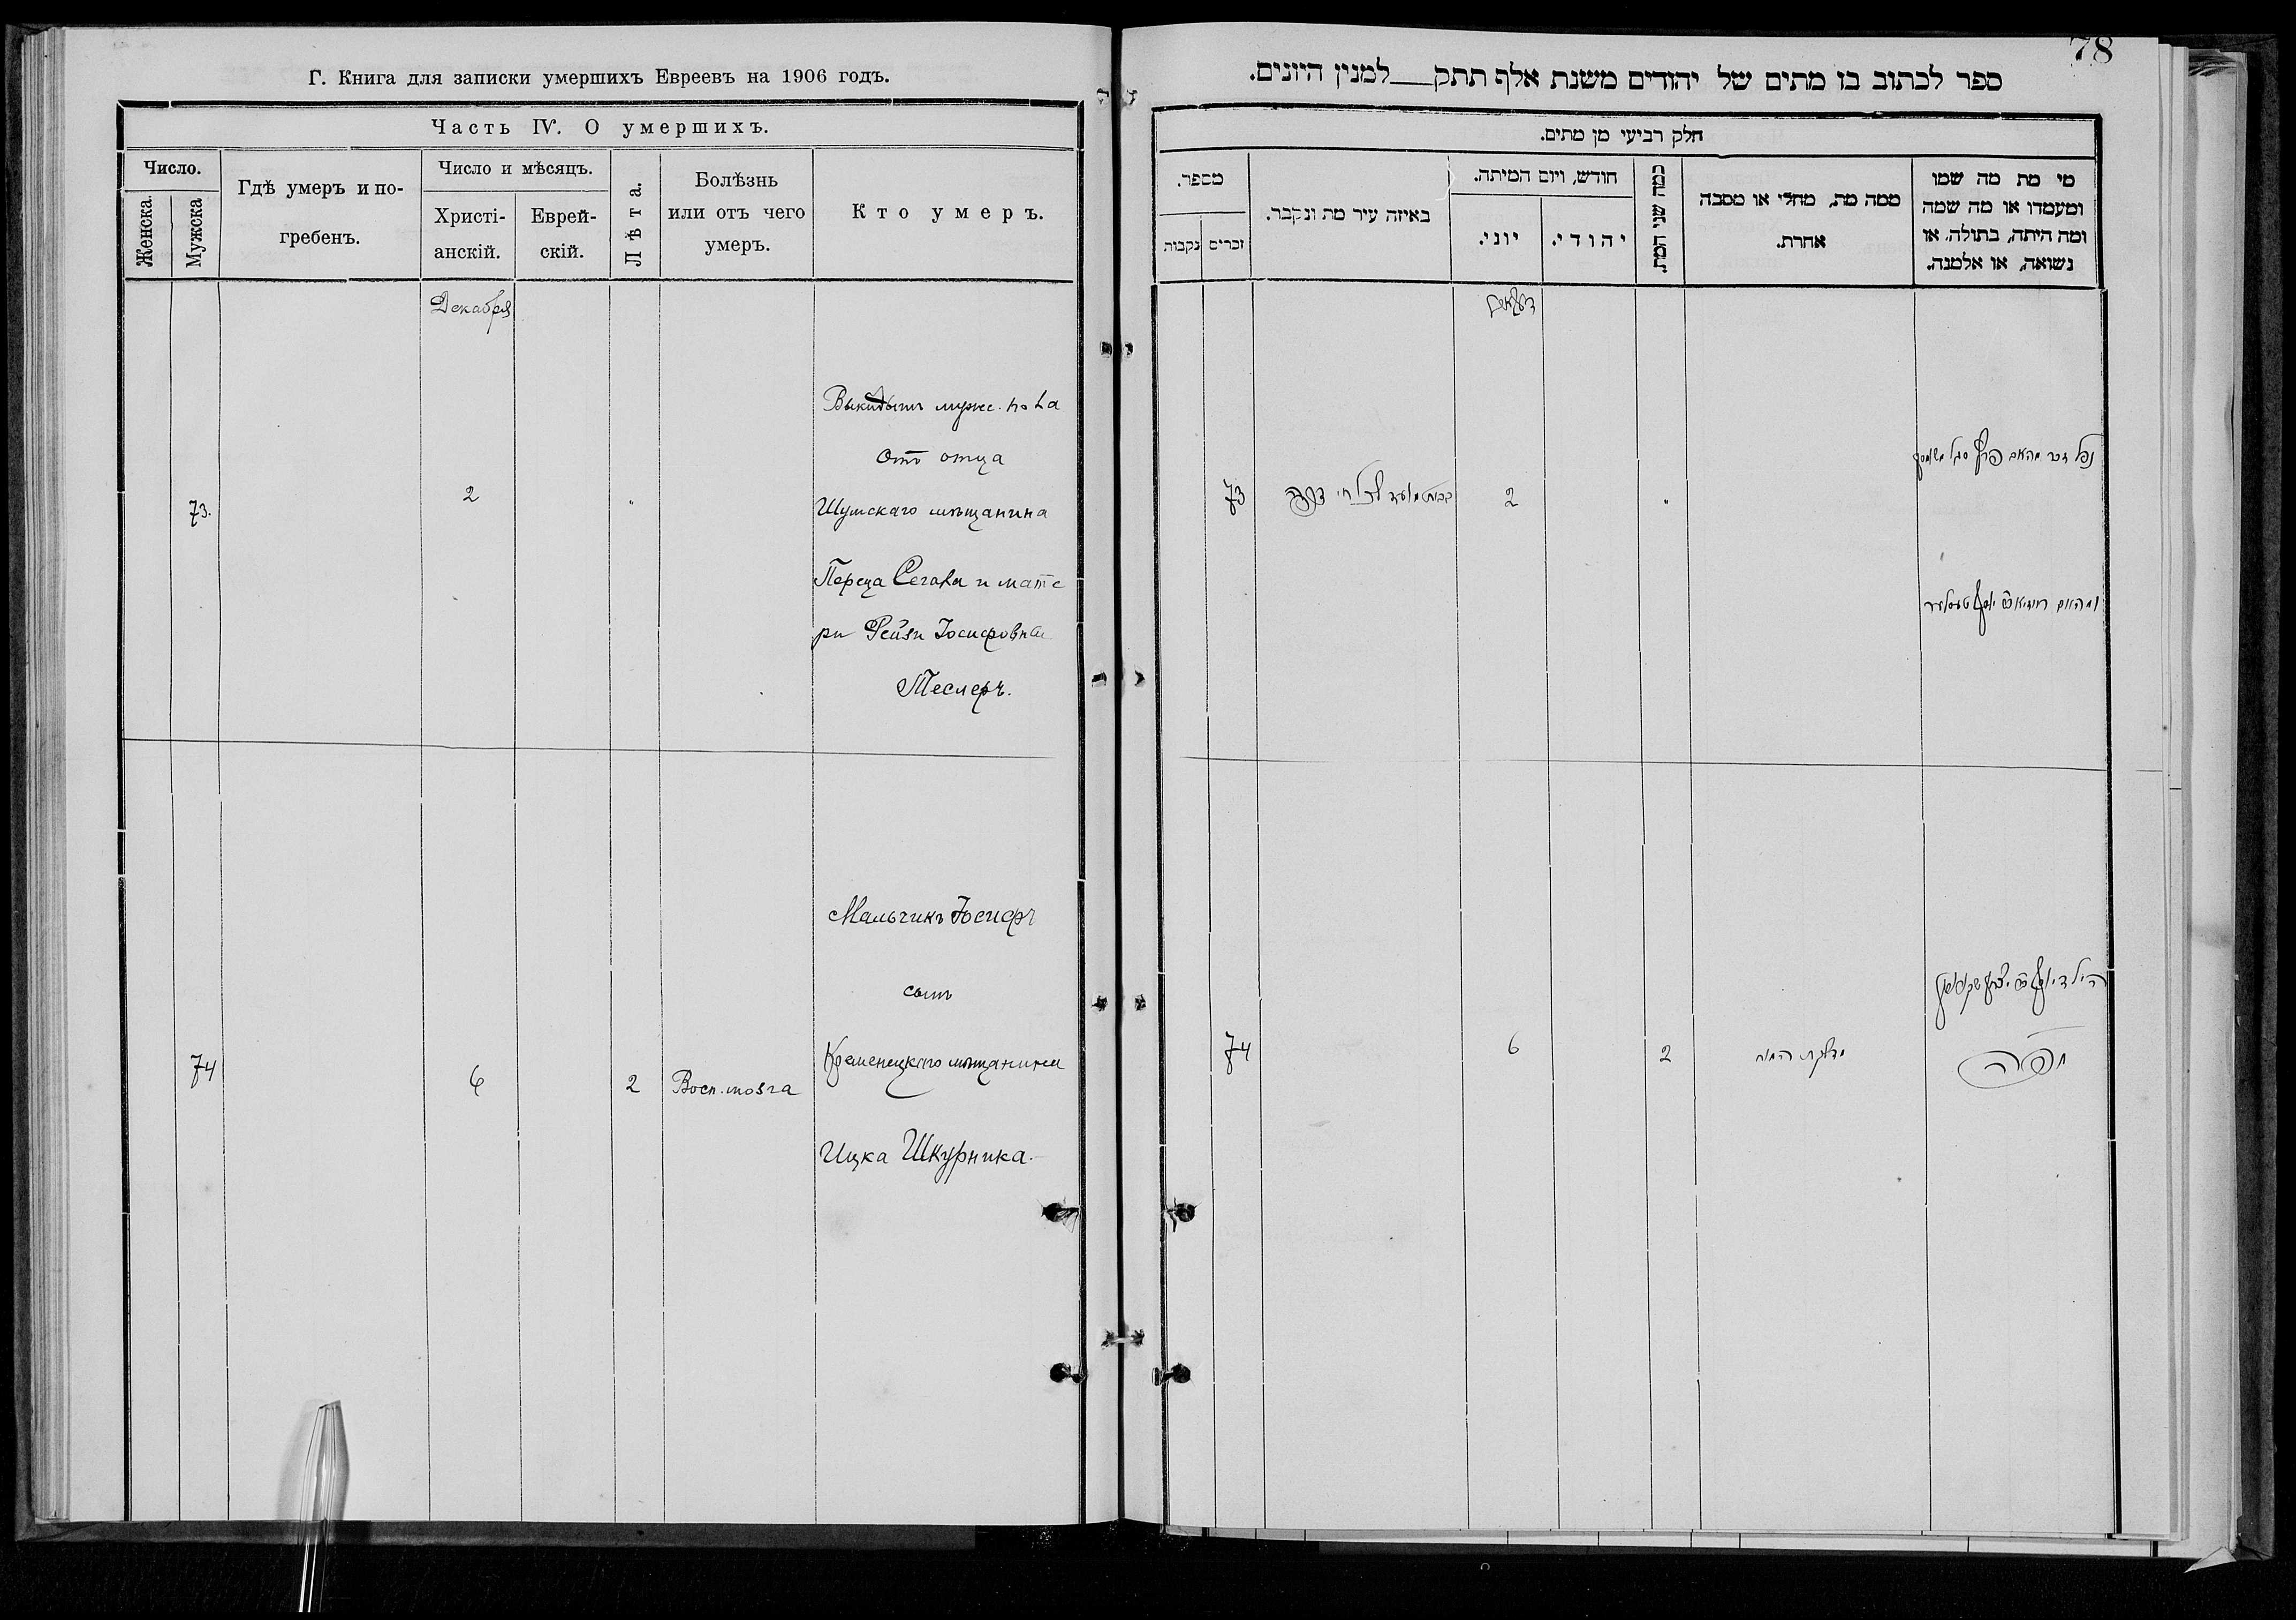 Г. Книга для записки умершихъ Евреевъ на 1906 годъ.
Часть IV. О умершихъ.
Число.
Женска.
Мужска
Гдѣ умеръ и по-
гребенъ.
Число и мѣсяцъ.
Христі-
анскій.
Еврей-
скій.
Лѣта.
Болѣзнь
или отъ чего
умеръ.
Кто умеръ.
Декабря
73.
2
"
Выкидышъ мужс. пола
Отъ отца
Шумскаго мѣщанина
Переца Сегала и мате
ри Рейзи Іосифовны
Теслеръ.
74
6
2
Восп. мозга
Мальчикъ Іосифъ
сынъ
Кременецкаго мѣщанина
Ицка Шкурника.
78
ספר לכתוב בו מתים של יהודים משנת אלף תתק___למנין היונים.
חלק רביעי מן מתים.
מספר.
נקבות
זכרים
באיזה עיר מת ונקבר.
חודש, ויום המיתה.
יוני.
יהודי.
כמה שני המת.
ממה מת, מחלי או מסבה
אחרת.
מי מת מה שמו
ומעמדו או מה שמה
ומה היתה, בתולה, או
נשואה, או אלמנה.
73
2
"
נפל זכר מהאב פרץ סגל
74
6
2
מדלקת המוח
הילד יוסף